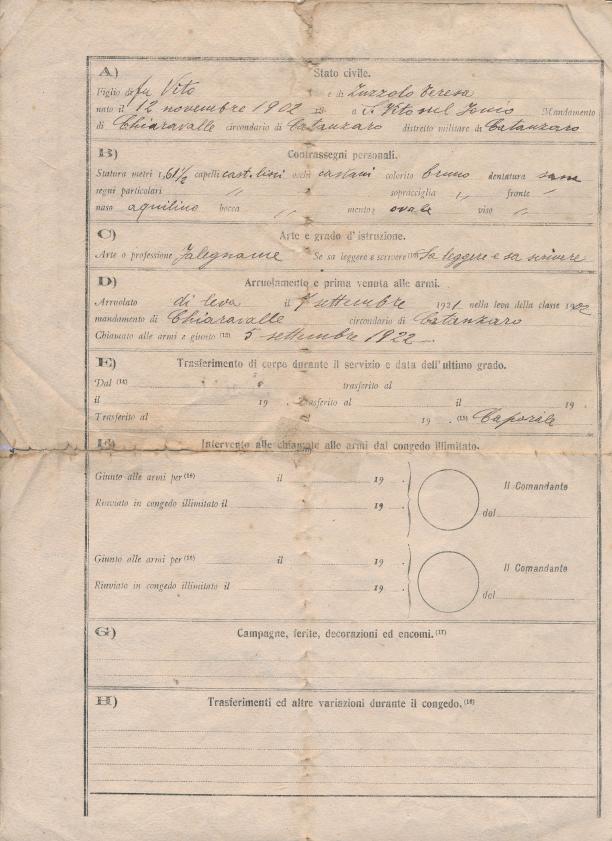 A) Stato civile.
Figlio di fu Vito e di Zuzzolo Teresa
nato il 12 novembre 1902 19 a S. Vito sul Jonio Mandamento
di Chiaravalle circondario di Catanzaro distretto militare di Catanzaro
B) Contrassegni personali.
Statura metri 1,61½ capelli casti lisci occhi castani colorito bruno dentatura sana
segni particolari " sopracciglia " fronte "
naso aquilino bocca " mento ovale viso "
C) Arte e grado d'istruzione.
Arte o professione Falegname Se sa leggere e scrivere Sa leggere e sa scrivere
D) Arruolamento e prima venuta alle armi.
Arruolato di leva il 7 settembre 1921. nella leva della classe 1902
mandamento di Chiaravalle circondario di Catanzaro
Chiamato alle armi e giunto (12) 5 settembre 1922
E) Trasferimento di corpo durante il servizio e data dell'ultimo grado.
Dal (14) trasferito al
il 19 . trasferito al il 19 .
Trasferito al 19 . (15) Caporale
F) Intervento alle chiamate alle armi dal congedo illimitato.
Giunto alle armi per (16) il 19 . Il Comandante
Rinviato in congedo illimitato il 19 . del
Giunto alle armi per (16) il 19 . Il Comandante
Rinviato in congedo illimitato il 19 . del
G) Campagne, ferite, decorazioni ed encomi. (17)
H) Trasferimenti ed altre variazioni durante il congedo. (18)